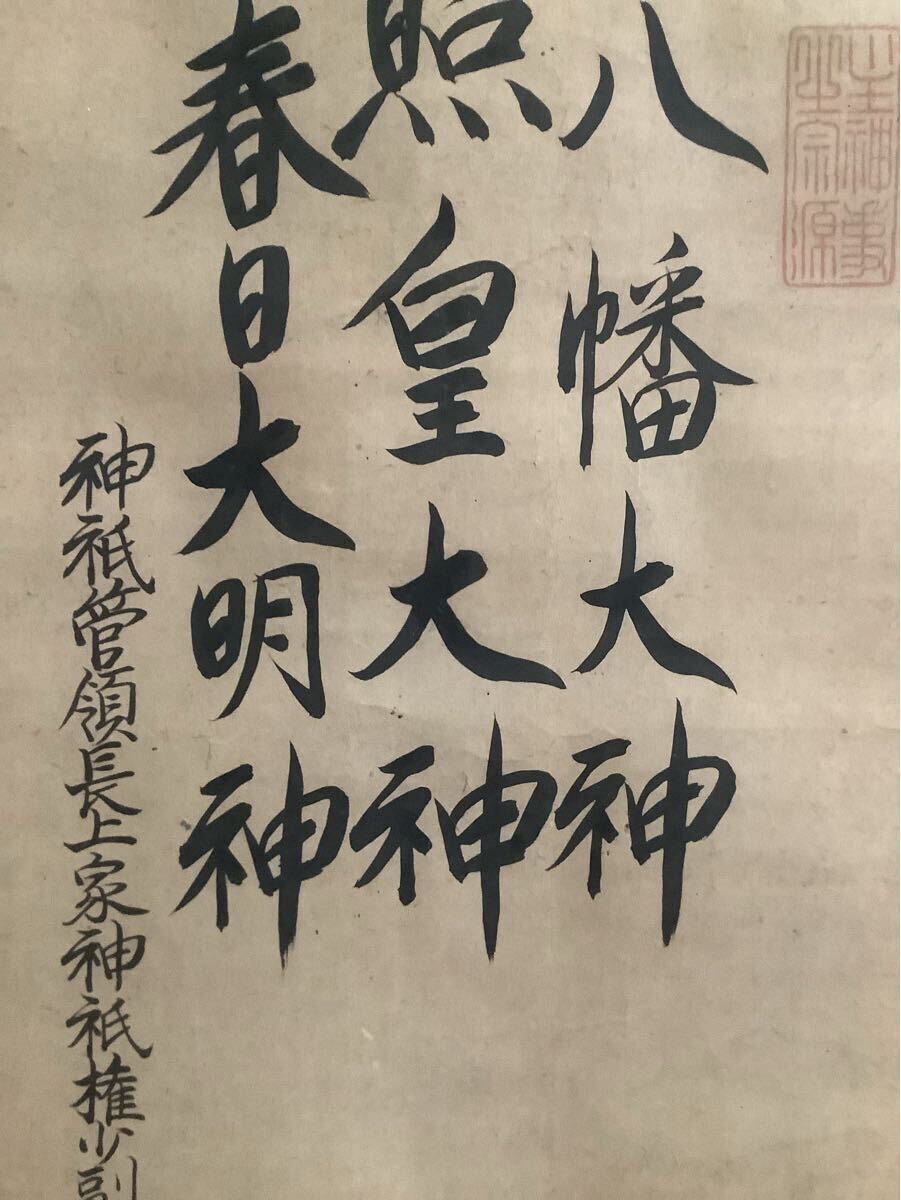 八幡大神
照皇大神
春日大明神
神祇管領長上家神祇権少副